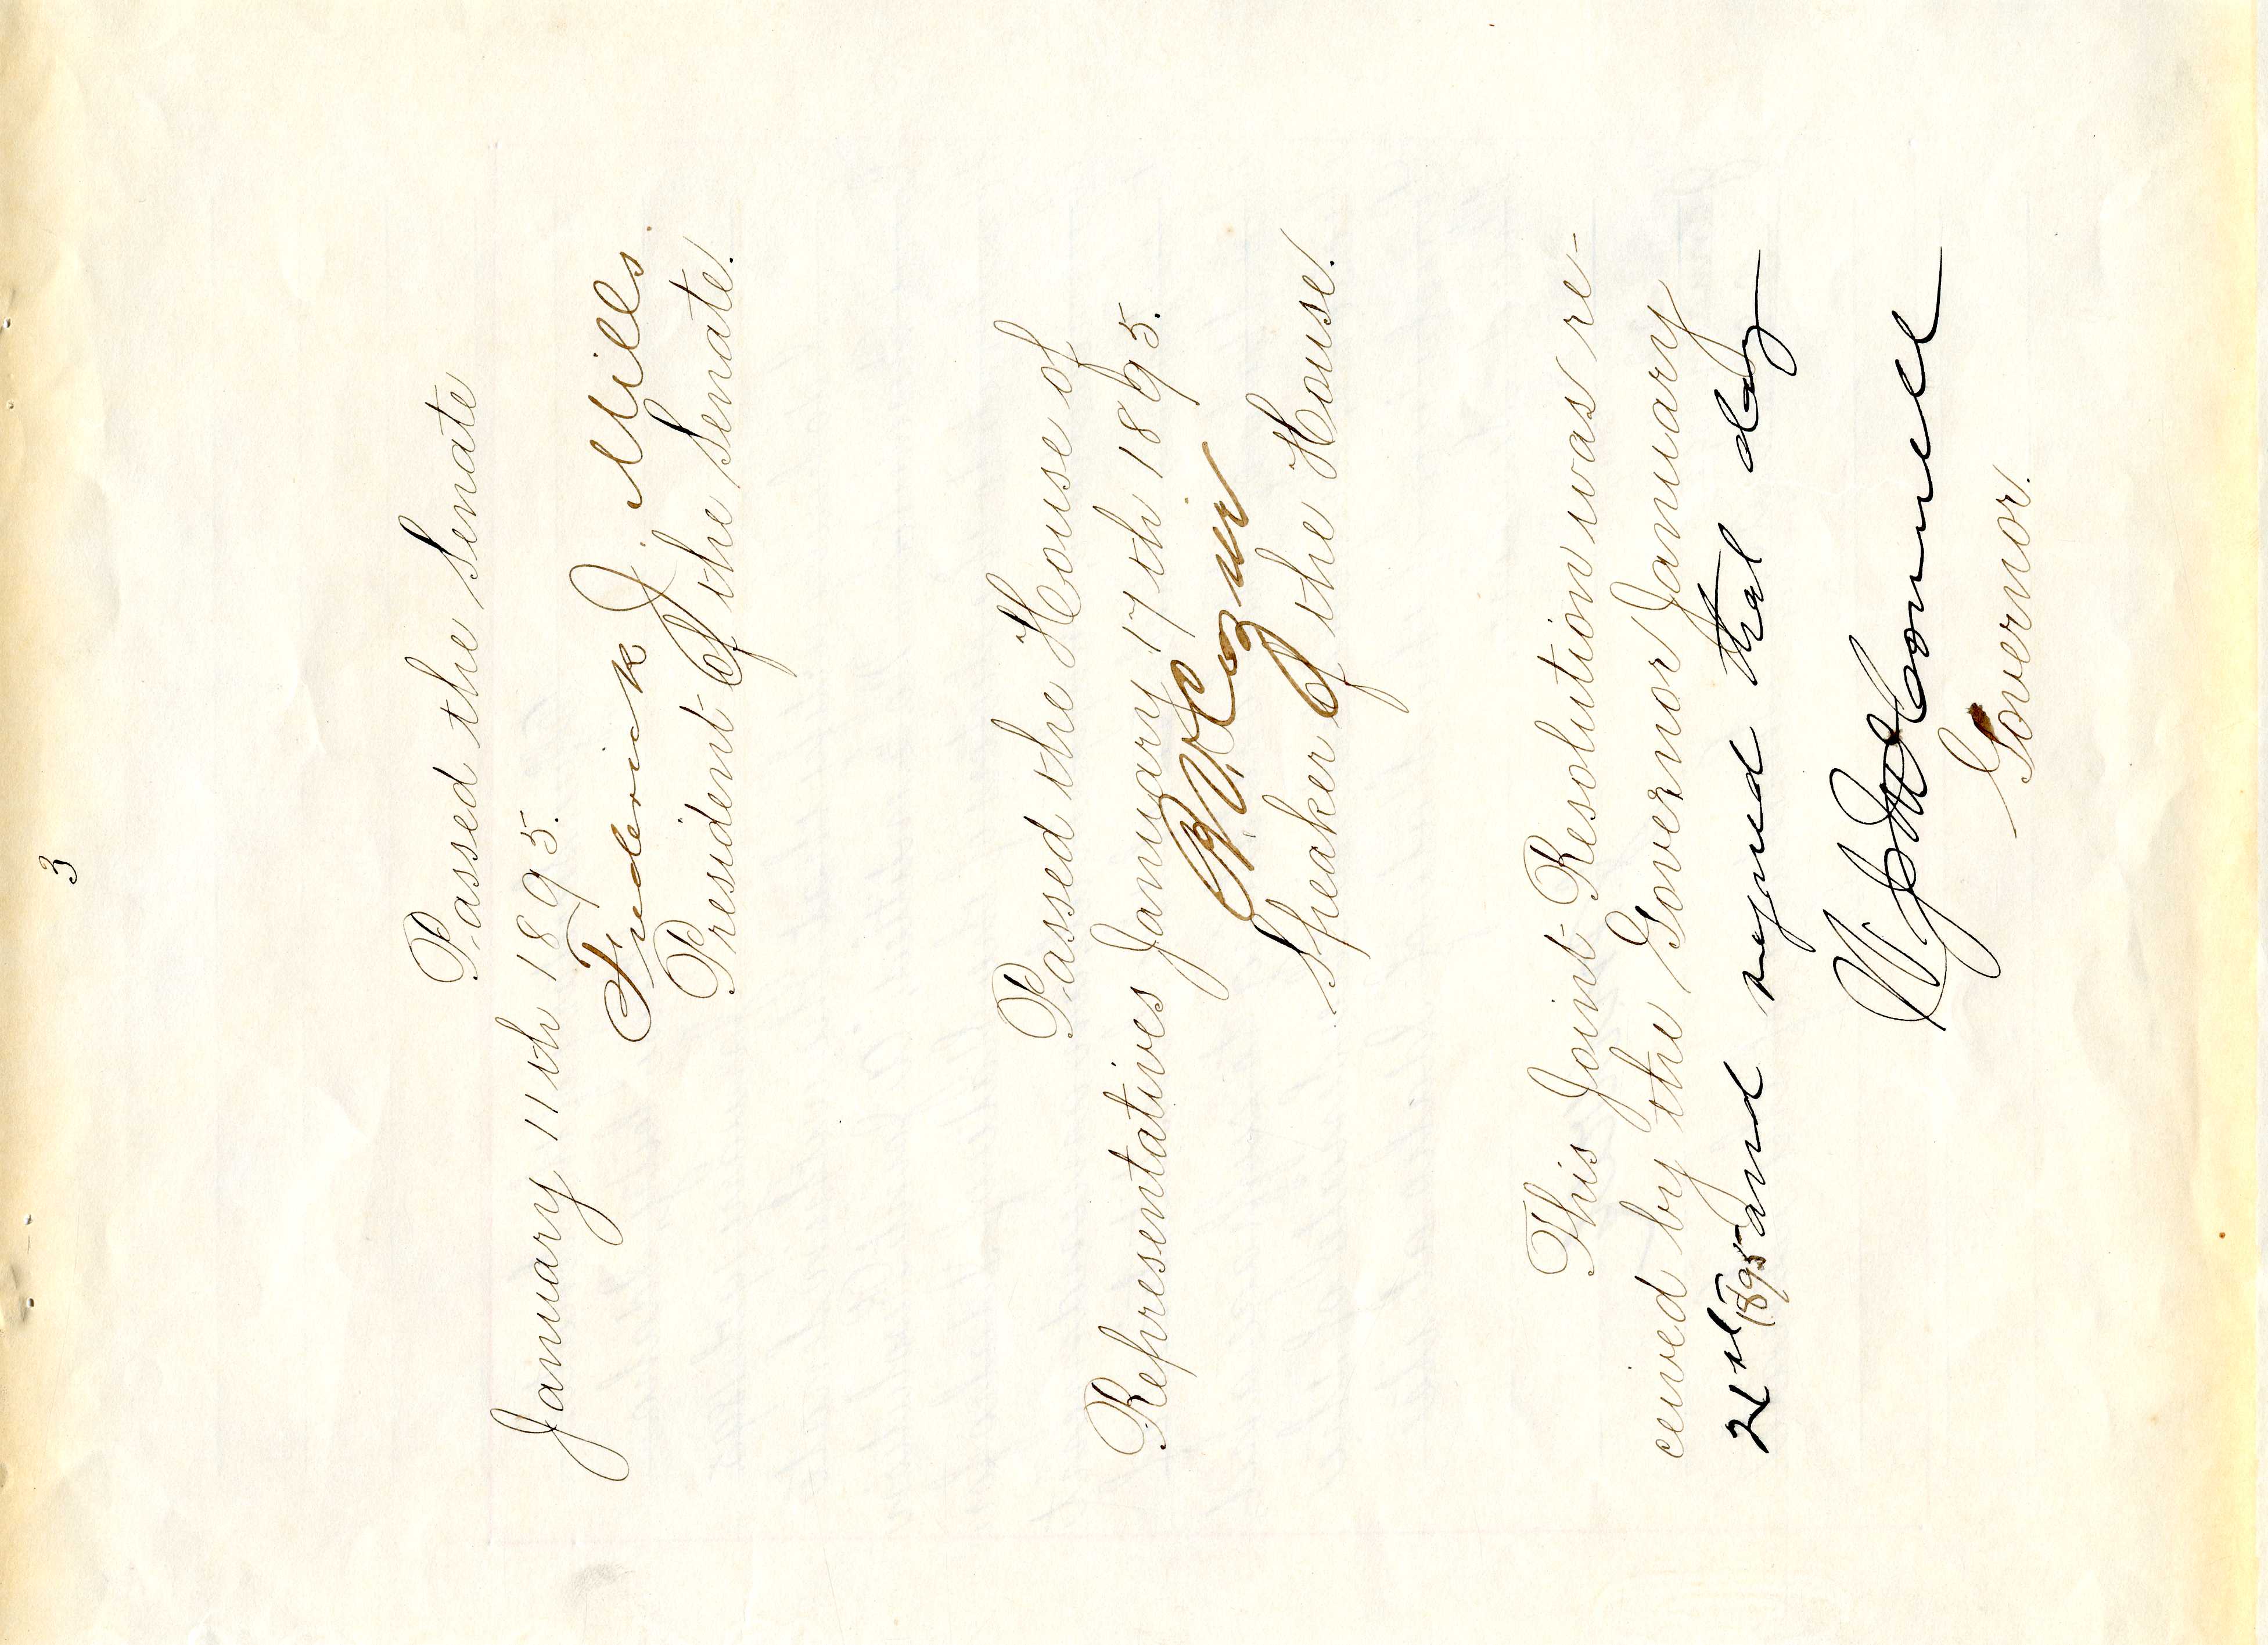 3
Passed the Senate
January 11th 1895.
Frederick J. Mills
President Of the Senate.
Passed the House of
Representatives January 17th 1895.
R. V. Cozier
Speaker Of the House.
This Joint Resolution was re-
ceived by the Governor January
21st 1895 and signed that day
W. J. McConnell
Governor.